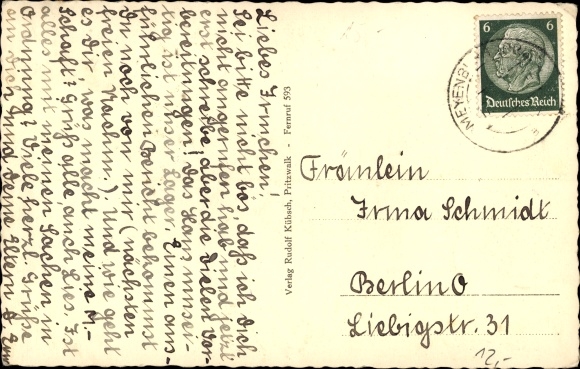 Liebes Irmchen!
Sei bitte nicht bös daß ich Dich
nicht angerufen hab und jetzt
erst schreibe aber die vielen Vor-
bereitungen! Das Haus unser-
ist unser Lager. Einen aus-
führlichen Bericht bekommst
Du noch von mir (nächsten
freien Nachm.). Und wie geht
es Dir, was macht meine M.-
schaft? Grüß alle, auch Lies. Ist
alles mit meinen Sachen in
Ordnung? Viele herzl. Grüße
Dir und Deine Eltern
Verlag Rudolf Kübsch, Pritzwalk - Fernruf 593
6 6
Deutsches Reich
MEYENB
Fräulein
Irma Schmidt
Berlin O
Liebigstr. 31
12,-